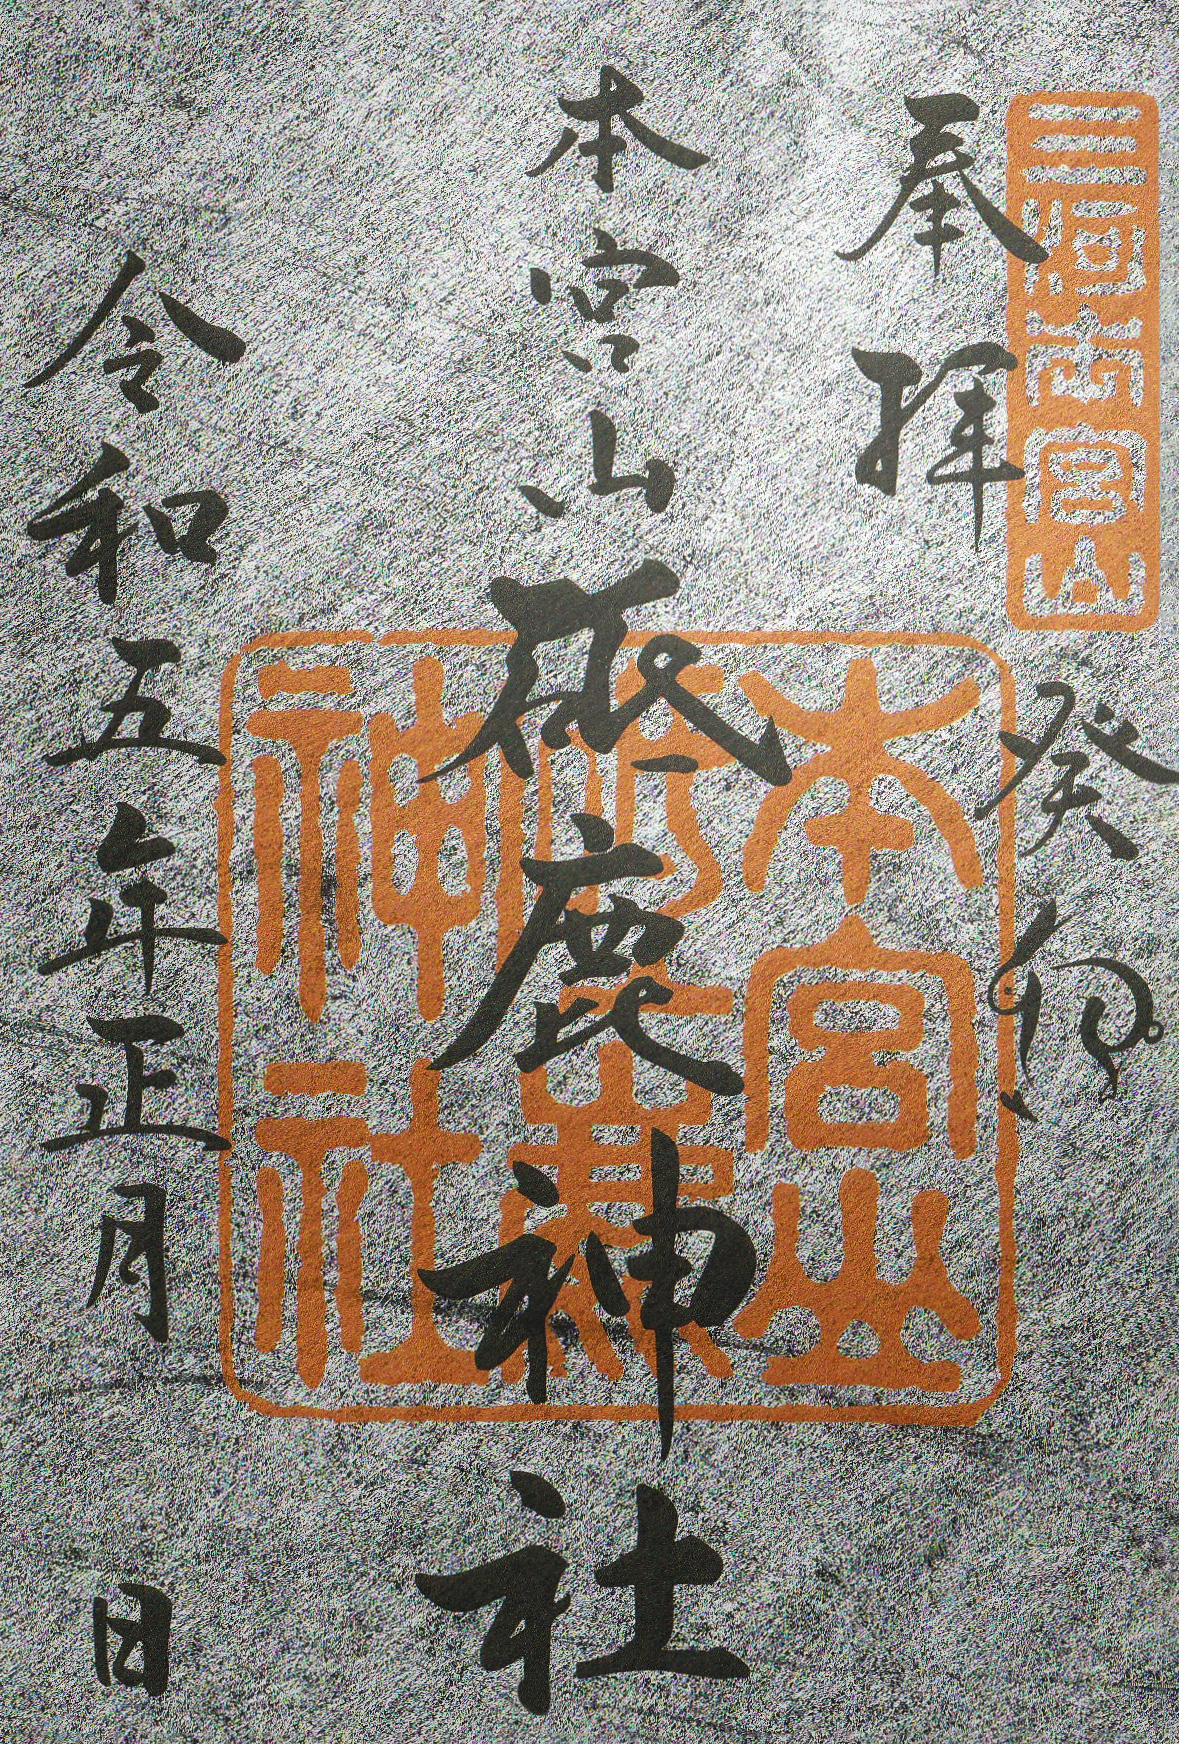 三河本宮山
癸卯
奉拝
本宮山
砥鹿神社
本宮山
砥鹿
神社
令和五年正月 日